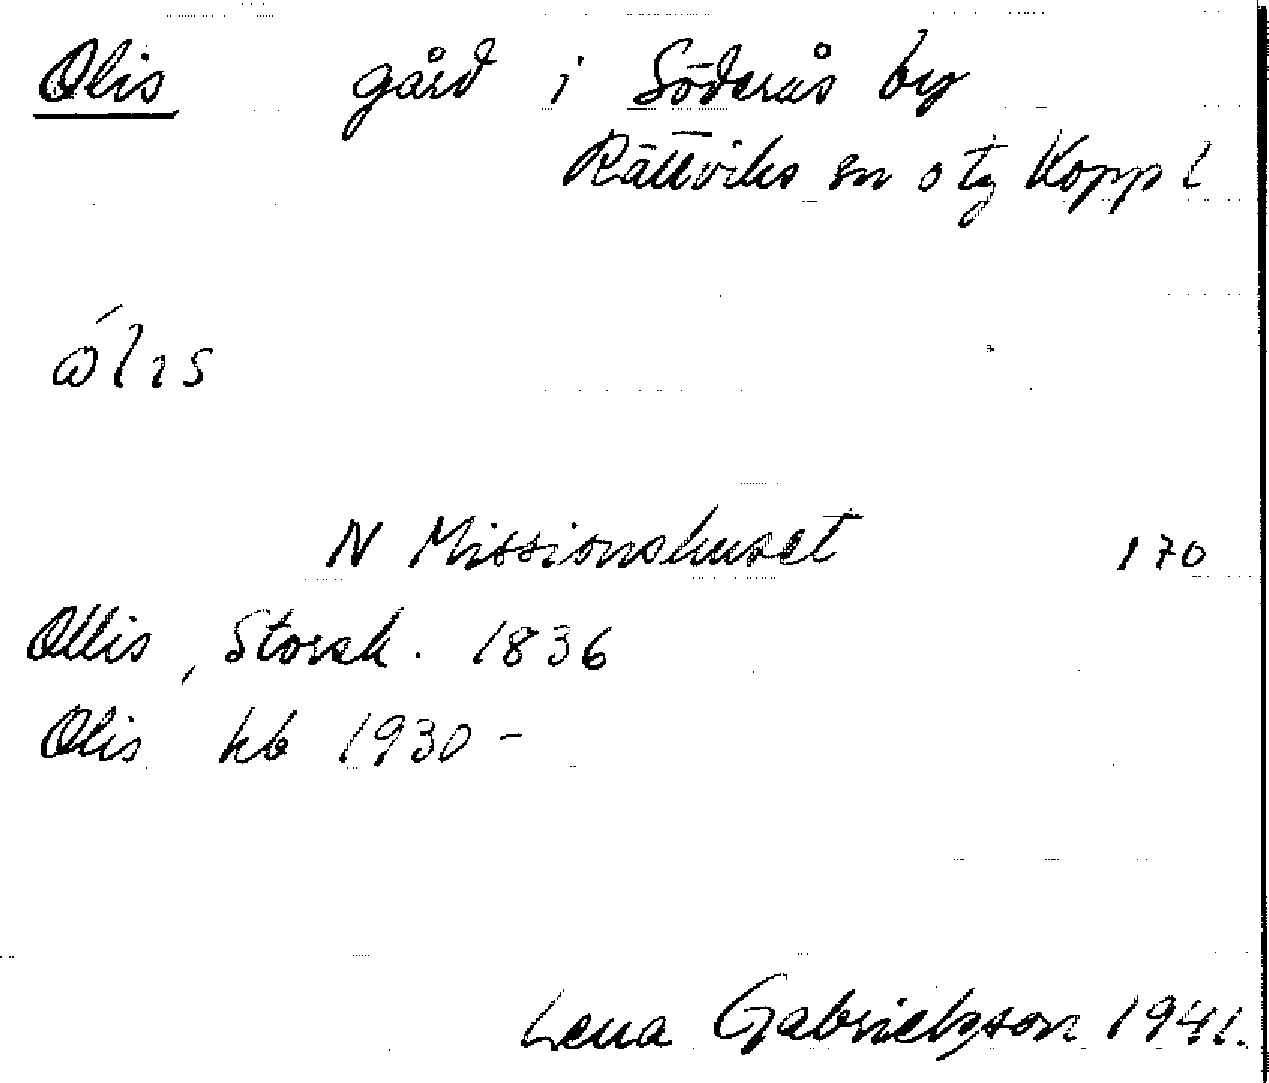 Olis gård i Söderås by
Rättviks sn o tg Kopp l
N Missionshuset 170
Ollis, Storsk. 1836
Olis kb 1930 -
Lena Gabrielsson 1941.